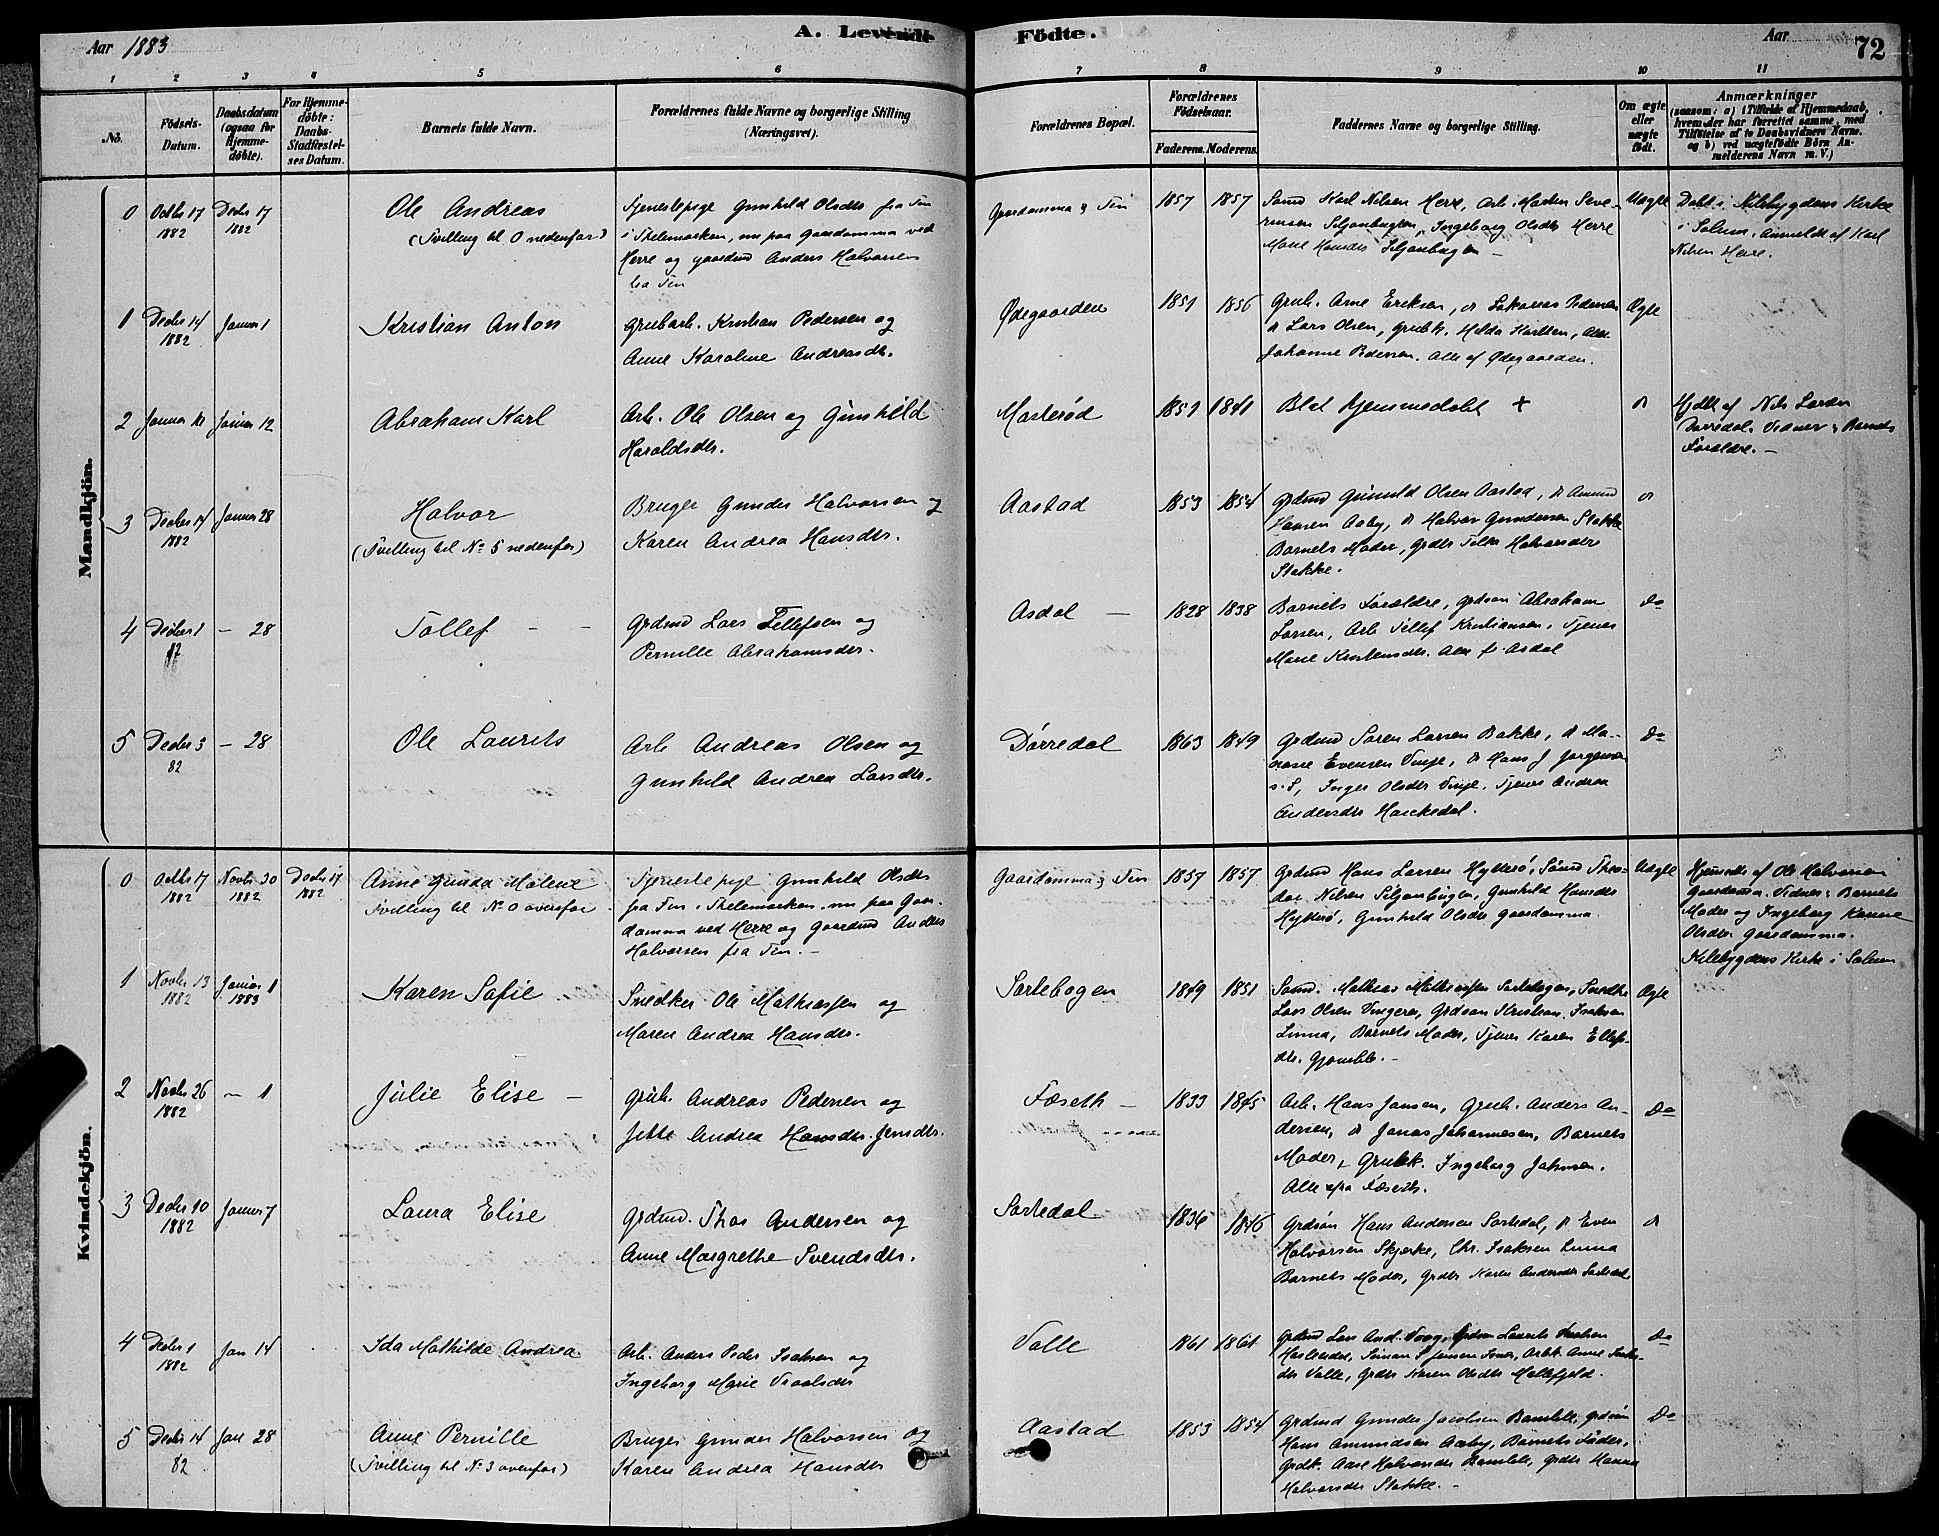 Aar 1883
A. Levende
Födte.
Aar
72
1 2 3 4 5 6 7 8 9 10 11
No.
Födsels-
Datum.
Daabsdatum
(ogsaa for
Hjemme-
döbte).
For Hjemme-
döbte:
Daabs-
Stadfæstel-
ses Datum.
Barnets fulde Navn.
Forældrenes fulde Navne og borgerlige Stilling
(Næringsvei).
Forældrenes Bopæl.
Forældrenes
Födselsaar.
Faderens. Moderens.
Faddernes Navne og borgerlige Stilling.
Om ægte
eller
uægte
födt.
Anmærkninger
(saasom: a) i Tilfælde af Hjemmedaab,
hvem der har forrettet samme, med
Tilföielse af to Daabsvidners Navne.
og b) ved uægtefödte Börn An-
melderens Navn m. V.)
Mandkjön.
0
Octbr 17
1882
Decbr 17
1882
Ole Andreas
(Tvilling til 0 nedenfor)
Tjenestepige Gunhild Olsdtr fra Tin
i Thelemarken, nu paa Gaardamma ved
Herre og gaardmd Anders Halvorsen
fra Tin
Gaardamma & Tin
1857
1857
Karl Nilsen Herre, Arb. Martin Seve-
rinsen Siljanbugten, Ingeborg Olsdtr Herre
Marie Hansdtr Siljanbugten
Uægte
Døbt i Kilebygdens Kirke
i Solum. Anmeldt af Karl
Nilsen Herre.
1
Decbr 14
1882
Januar 1
Kristian Anton
Grubarb. Kristian Pedersen og
Anne Karoline Andreasdtr.
Ødegaarden
1851
1856
Grub. Arne Eriksen, Sakarias Pedersen
Lars Olsen, Grubk. Hilda Karlsen,
Johanne Pedersen. Alle af Ødegaarden.
Ægte
2
Januar
Januar 12
Abraham Karl
Arb. Ole Olsen og Gunhild
Haroldsdtr.
Marterød
1851
1841
Blot hjemmedøbt +
Hjdbt af Nils Larsen
Dørredal. Vidner: Barnets
Forældre. –
3
Decbr 14
1882
Januar 28
Halvor
(Tvilling til No 5 nedenfor)
Bruger Gunder Halvorsen og
Karen Andrea Hansdtr.
Aastad
1853
1854
Grdmd Olsen Aastad, Amund
Hansen Aaby, Halvor Gundersen Stokke
Barnets Moder, Grdtr Halvorsdtr
Stokke.
4
Decbr 1
– 28
Tollef – –
Grdmd Lars Tellefsen og
Pernille Abrahamsdtr.
Asdal –
1828
1838
Barnets Forældre, Grdsøn Abraham
Larsen, Arb Tellef Kristiansen, Tjener
Marie Kristensdtr. Alle fr. Asdal
Do
5
Decbr 3
82
– 28
Ole Laurits
Arb Andreas Olsen og
Gunhild Andrea Larsdtr.
Dørredal
1863
1849
Grdmd Søren Larsen Bakke,
Evensen Vinje, Hans J Jørgensen
Inger Olsdtr Vinje. Tjener Andrea
Andersdtr
Do
Kvindekjön.
0
Octbr 17
1882
Novbr 30
1882
Decbr 17
1882
Anne Gunda Malene
Tvilling til No 0 ovenfor
Tjenestepige Gunhild Olsdtr
fra Tin i Thelemarken, nu paa Gaar-
damma ved Herre og Gaardmd Anders
Halvorsen fra Tin. –
Gaardamma & Tin
1857
1857
Grdmd Hans Larsen Hytterø, Theo-
dor Nilsen Siljanbugten, Gunhild Hansdtr
Hytterø, Gunhild Olsdtr Gaardamma
Uægte
Hjemdbt af Ole Halvorsen
Gaardamma. Vidner: Barnets
Moder og Ingeborg
Olsdtr Gaardamma.
Kilebygdens Kirke i Solum
1
Novbr 13
1882
Januar 1
1883
Karen Sofie
Snedker Ole Mathiassen og
Maren Andrea Hansdtr.
Sortebogen
1849
1851
Mathias Mathiassen Sortebogen, Snedker
Lars Olsen Grdsøn Kristian Isaksen
Linna, Barnets Moder, Tjener Karen Ellefs-
dtr.
Ægte
2
Novbr 26
1882
– 1
Julie Elise –
Grub. Andreas Pedersen og
Jette Andrea Hansdtr. Jensdtr.
Fæseth –
1833
1845
Arb. Hans Jansen, Grub. Anders An-
dersen, Jonas Johannesen, Barnets
Moder, Grubk. Ingeborg Johnsen.
Alle fra Fæseth.
Do
3
Decbr 10
1882
Januar 7
Laura Elise
Grdmd. Thor Andersen og
Anne Margrethe Svendsdtr.
Sortedal
1836
1846
Grdsøn Hans Andersen Sortedal, Even
Halvorsen Skjerke, Chr. Isaksen Linna
Barnets Moder, Grdtr Karen Andersdtr Sortedal
4
Decbr 1
1882
Jan 14
Ida Mathilde Andrea
Arb. Anders Peder Isaksen og
Ingeborg Marie
Valle
1861
1861
Grdmd Lars And. Grdsøn Laurits
Arbk Anne
dtr Valle, Grdtr Karen Olsdtr
Do
5
Decbr 14
82
Jan 28
Anne Pernille
(Tvilling til No 3 ovenfor)
Bruger Gunder Halvorsen og
Karen Andrea Hansdtr
Aastad
1853
1854
Grdmd Gunder Jacobsen Bamble, Grdsøn
Hans Amundsen Aaby, Barnets Fader,
Grdk. Halvorsdtr Bamble, Grdtr
Halvorsdtr Stokke. –
Do